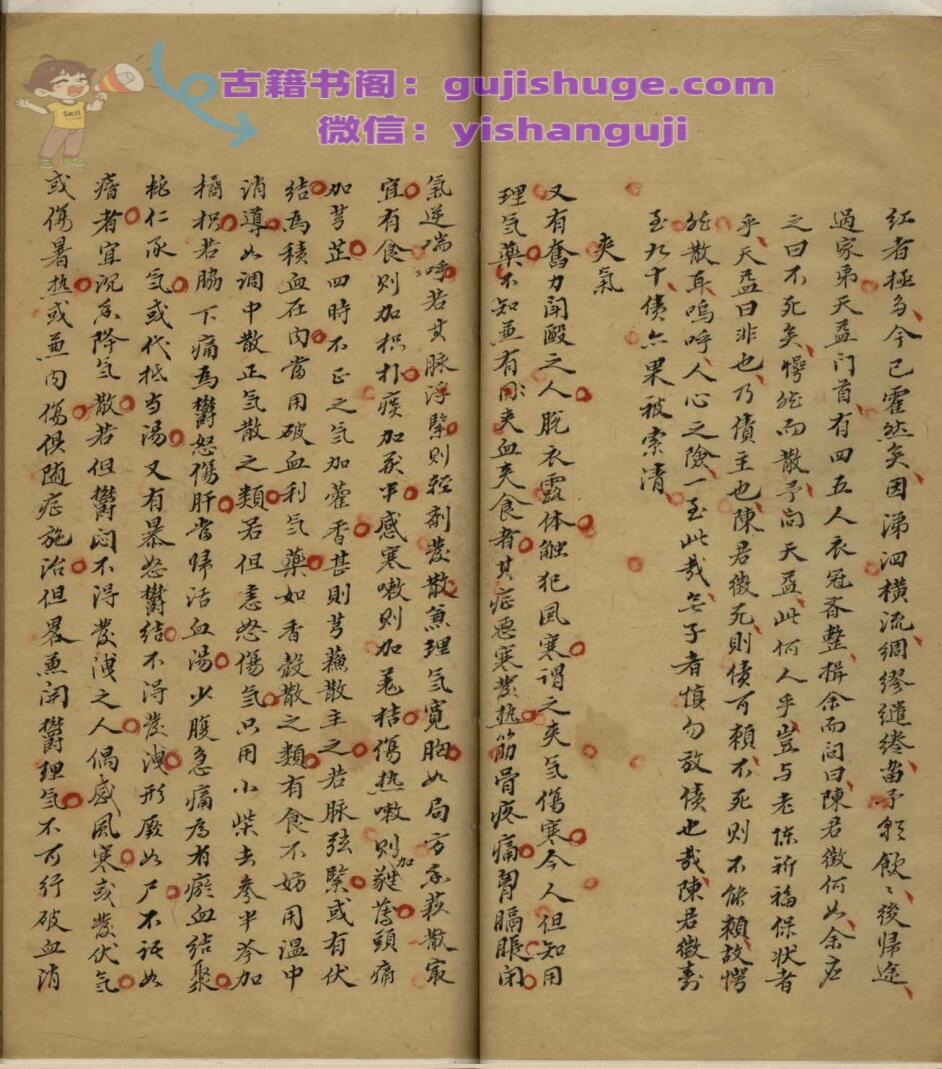 古籍书阁：gujishuge.com
微信：yishanguji
Sell
红者極多今已霍然矣因涕泗横流綢繆繾綣當予飲飲後歸途
過家弟天孟门首有四五人衣冠吝整揖余而问曰陳君徵何如余应
之曰不死矣愕然而散予向天孟此何人乎豈与老陈祈福保状者
乎天孟曰非也乃债主也陳君徵死则债可賴不死则不能賴故愕
然散耳嗚呼人心之險一至此哉生子者慎勿放债也哉陳君徵壽
至九十债亦果被索清
夹氣
又有奮力闲毆之人脱衣露体触犯風寒谓之夹气傷寒今人但知用
理气藥不知兼有夹血夹食者其症恶寒發热筋骨疼痛胷膈脹闭
氣逆喘呼若其脉浮緊则轻剂發散兼理气寬胸如局方香蘇散最
宜有食则加枳朴痰加苓半感寒嗽则加羌桔傷热嗽则加薄頭痛
加芎芷四時不正之气加藿香甚则芎蘇散主之若脉弦緊或有伏
结為積血在内當用破血利气藥如香殼散之類有食不妨用温中
消導如调中散正气散之類若但恚怒傷气只用小柴去参半芩加
橘枳若脇下痛為欝怒傷肝當歸活血湯少腹急痛為有瘀血结聚
桃仁承气或代抵当湯又有暴怒欝结不得發洩形厥如尸不语如
瘖者宜沉香降气散若但欝闷不得發洩之人偶感風寒或發伏气
或傷暑热或兼内傷俱随症施治但畧兼闲欝理气不可行破血消